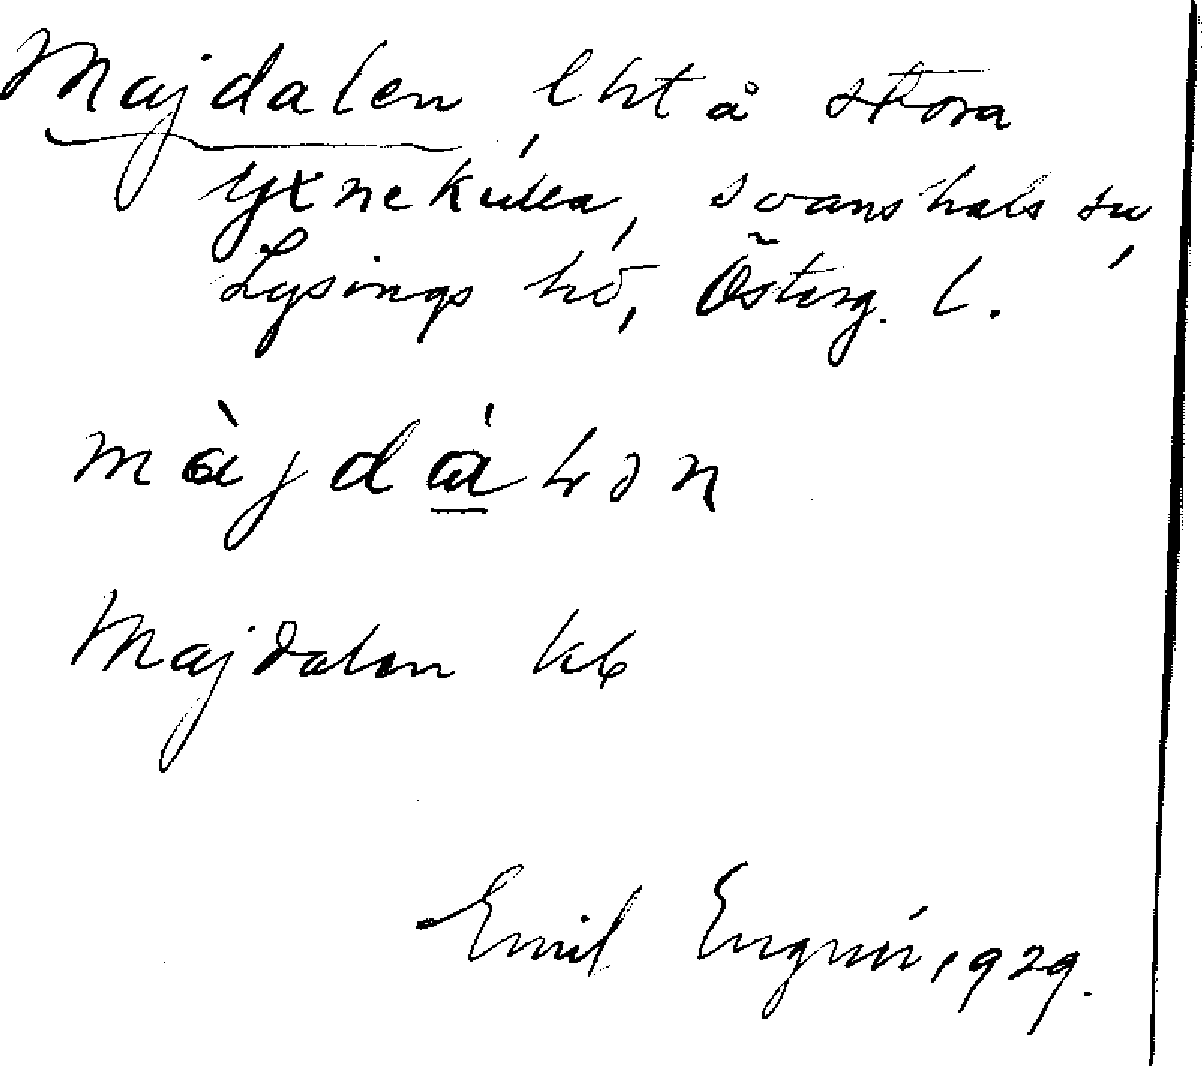 Majdalen, lht å stora
Yxnekulla, Svanshals sn,
Lysings hd, Österg. l.
màjdálən
Majdalen kb
Emil 1929.